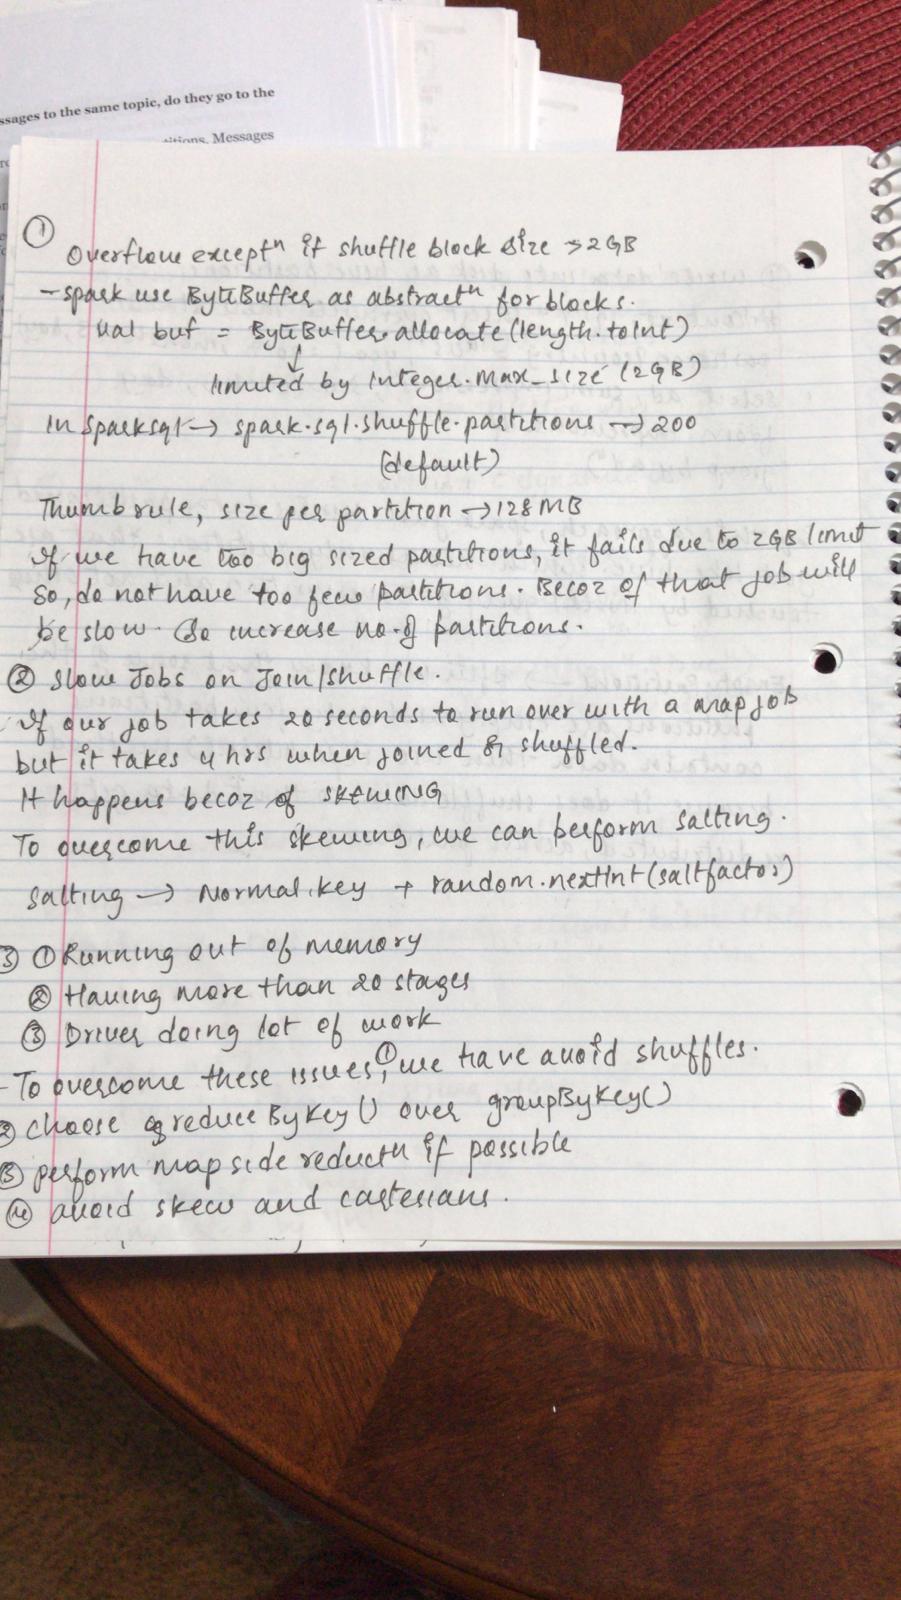 ssages to the same topic, do they go to the
itions. Messages
①
Overflow exceptn if shuffle block size > 2GB
- spark use ByteBuffer as abstractn for blocks.
val buf = ByteBuffer.allocate(length.toInt)
↓
limited by Integer.Max_SIZE (2GB)
In Sparksql → spark.sql.shuffle.partitions → 200
(default)
Thumb rule, size per partition → 128 MB
If we have too big sized partitions, it fails due to 2GB limit
So, do not have too few partitions. Becoz of that job will
be slow. So increase no. of partitions.
② Slow Jobs on Join/Shuffle.
If our job takes 20 seconds to run over with a map job
but it takes 4 hrs when joined or shuffled.
It happens becoz of SKEWING
To overcome this skewing, we can perform salting.
Salting → Normal.key + random.nextInt(saltfactor)
③ ① Running out of memory
② Having more than 20 stages
③ Driver doing lot of work
- To overcome these issues, ① we have avoid shuffles.
② choose reduceByKey() over groupByKey()
③ perform map side reductn if possible
④ avoid skew and cartesians.